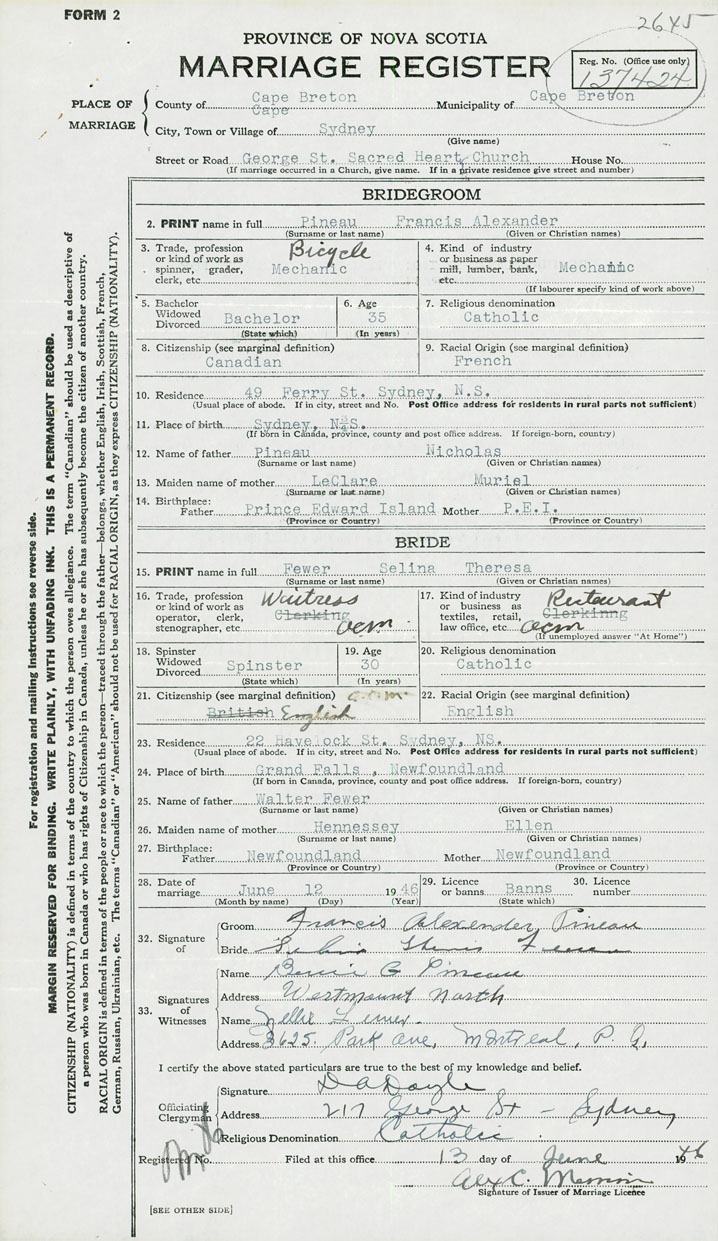 FORM 2
2645
PROVINCE OF NOVA SCOTIA
MARRIAGE REGISTER
Reg. No. (Office use only)
137424
PLACE OF MARRIAGE
County of Cape Breton Municipality of Cape Breton
Cape
City, Town or Village of Sydney
(Give name)
Street or Road George St. Sacred Heart Church House No.
(If marriage occurred in a Church, give name. If in a private residence give street and number)
BRIDEGROOM
2. PRINT name in full Pineau Francis Alexander
(Surname or last name) (Given or Christian names)
3. Trade, profession or kind of work as spinner, grader, clerk, etc. Bicycle Mechanic
4. Kind of industry or business as paper mill, lumber, bank, etc. Mechanic
(If labourer specify kind of work above)
5. Bachelor Widowed Divorced Bachelor
(State which)
6. Age 35
(In years)
7. Religious denomination
Catholic
8. Citizenship (see marginal definition)
Canadian
9. Racial Origin (see marginal definition)
French
10. Residence 49 Ferry St. Sydney, N.S.
(Usual place of abode. If in city, street and No. Post Office address for residents in rural parts not sufficient)
11. Place of birth Sydney, N.S.
(If born in Canada, province, county and post office address. If foreign-born, country)
12. Name of father Pineau Nicholas
(Surname or last name) (Given or Christian names)
13. Maiden name of mother LeClare Muriel
(Surname or last name) (Given or Christian names)
14. Birthplace: Father Prince Edward Island Mother P.E.I.
(Province or Country) (Province or Country)
BRIDE
15. PRINT name in full Fewer Selina Theresa
(Surname or last name) (Given or Christian names)
16. Trade, profession or kind of work as operator, clerk, stenographer, etc. Waitress Clerking acm
17. Kind of industry or business as textiles, retail, law office, etc. Restaurant Clerkinng acm
(If unemployed answer "At Home")
18. Spinster Widowed Divorced Spinster
(State which)
19. Age 30
(In years)
20. Religious denomination
Catholic
21. Citizenship (see marginal definition) a.c.m.
British English
22. Racial Origin (see marginal definition)
English
23. Residence 22 Havelock St. Sydney, NS.
(Usual place of abode. If in city, street and No. Post Office address for residents in rural parts not sufficient)
24. Place of birth Grand Falls , Newfoundland
(If born in Canada, province, county and post office address. If foreign-born, country)
25. Name of father Walter Fewer
(Surname or last name) (Given or Christian names)
26. Maiden name of mother Hennessey Ellen
(Surname or last name) (Given or Christian names)
27. Birthplace: Father Newfoundland Mother Newfoundland
(Province or Country) (Province or Country)
28. Date of marriage June 12 1946
(Month by name) (Day) (Year)
29. Licence or banns Banns
(State which)
30. Licence number
32. Signature of
Groom Francis Alexender Pineau
Bride
33. Signatures of Witnesses
Name Pineau
Address Westmount North
Name Nellie Fewer.
Address 3625 Park ave, Montreal, P. Q,
I certify the above stated particulars are true to the best of my knowledge and belief.
Officiating Clergyman
Signature D A Doyle
Address 217 George St - Sydney
Religious Denomination Catholic
Registered No. Filed at this office 13 day of June 1946
Alex C.
Signature of Issuer of Marriage Licence
[SEE OTHER SIDE]
For registration and mailing instructions see reverse side.
MARGIN RESERVED FOR BINDING. WRITE PLAINLY, WITH UNFADING INK. THIS IS A PERMANENT RECORD.
CITIZENSHIP (NATIONALITY) is defined in terms of the country to which the person owes allegiance. The term "Canadian" should be used as descriptive of
a person who was born in Canada or who has rights of Citizenship in Canada, unless he or she has subsequently become the citizen of another country.
RACIAL ORIGIN is defined in terms of the people or race to which the person—traced through the father—belongs, whether English, Irish, Scottish, French,
German, Russian, Ukrainian, etc. The terms "Canadian" or "American" should not be used for RACIAL ORIGIN, as they express CITIZENSHIP (NATIONALITY).